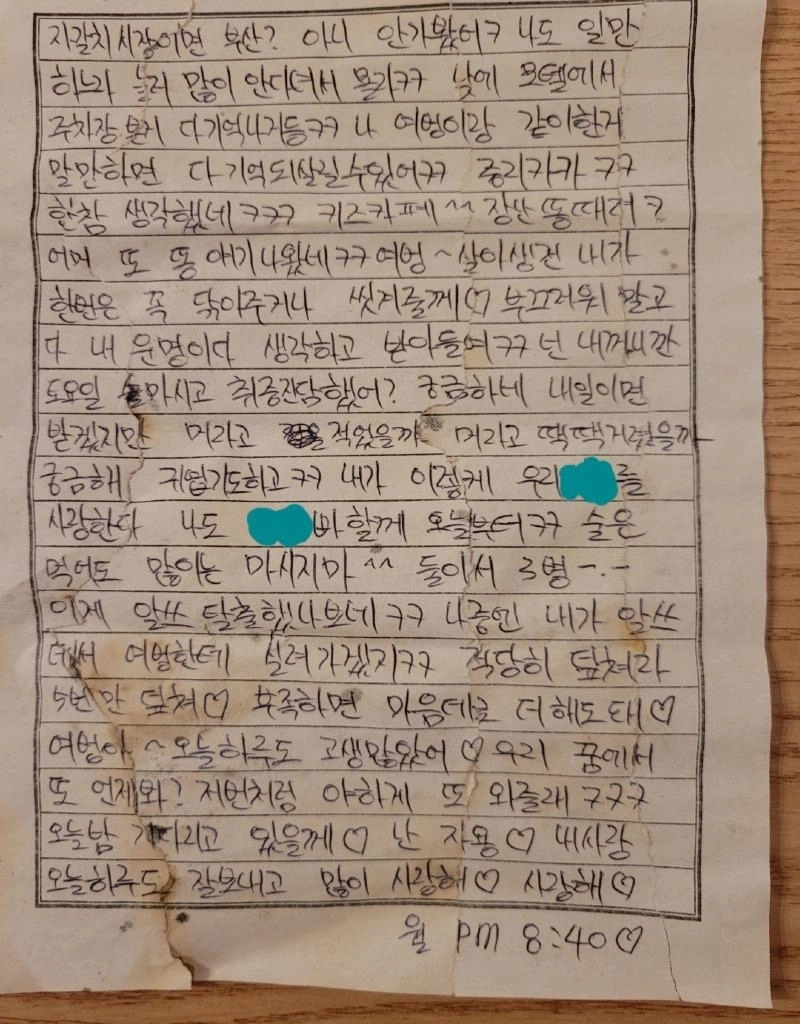 자갈치시장이면 부산? 아니 안가봤어ㅋ 나도 일만
하느라 놀러 많이 안다녀서 몰라ㅋㅋ 낮에 모텔에서
주차장 본거 다기억나거든ㅋㅋ 나 여벙이랑 같이한거
말만하면 다 기억되살릴수있어ㅋㅋ 종리카카 ㅋㅋ
한참 생각했네 ㅋㅋㅋ 키즈카페^^ 장난 똥때려?
어머 또 똥 얘기나왔네ㅋㅋ 여벙~살아생전 내가
한번은 꼭 닦아주거나 씻겨줄께♡ 부끄러워 말고
다 내 운명이다 생각하고 받아들여ㅋㅋ 넌 내꺼니깐
토요일 술마시고 취중진담했어? 궁금하네 내일이면
받겠지만 머라고 적었을까 머라고 떽떽거렸을까
궁금해 귀엽기도하고ㅋㅋ 내가 이렇게 우리 를
사랑한다 나도 바할께 오늘부터ㅋㅋ 술은
먹어도 많이는 마시지마^^ 둘이서 3병-.-
이제 알쓰 탈출했나보네ㅋㅋ 나중엔 내가 알쓰
돼서 여벙한테 실려가겠지ㅋㅋ 적당히 덮쳐라
5번만 덮쳐♡ 부족하면 마음데로 더해도돼♡
여벙아~오늘하루도 고생많았어♡우리 꿈에서
또 언제봐? 저번처럼 야하게 또 와줄래 ㅋㅋㅋ
오늘밤 기다리고 있을께♡ 난 자용♡ 내사랑
오늘하루도 잘보내고 많이 사랑해♡ 사랑해♡
월 PM 8:40♡